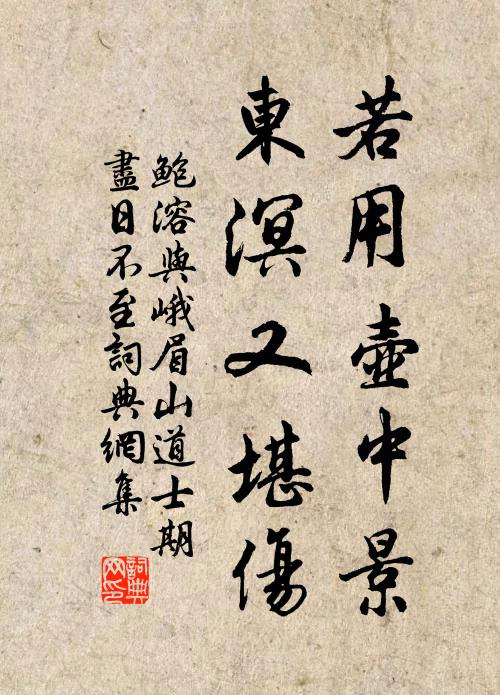 若用壺中景
東溟又堪傷
鲍溶與峨眉山道士期
盡日不至詞典網集
詞典
网印